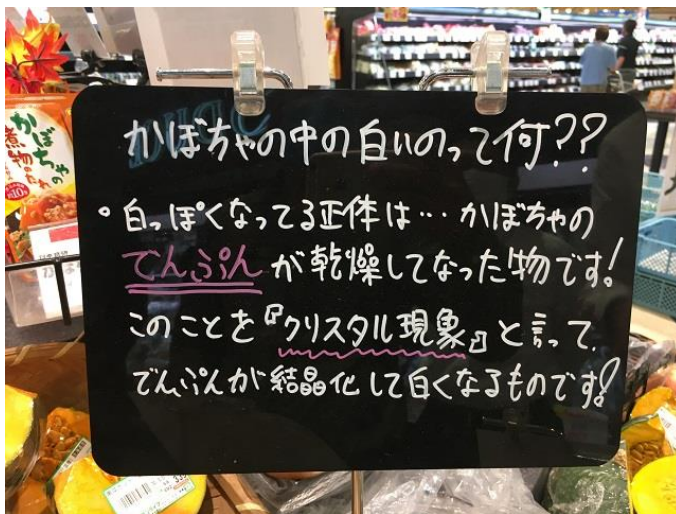 かぼちゃの中の白いのって何??
・白っぽくなってる正体は…かぼちゃの
でんぷんが乾燥してなった物です!
このことを『クリスタル現象』と言って、
でんぷんが結晶化して白くなるものです!
かぼちゃの
煮物のたれ